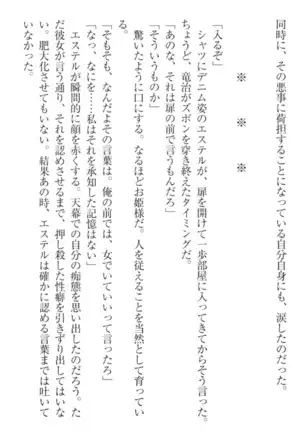 同時に、その悪事に荷担することになっている自分自身にも、涙したのだった。
※　　※　　※
「入るぞ」
シャツにデニム姿のエステルが、扉を開けて一歩部屋に入ってきてからそう言った。
ちょうど、竜治がズボンを穿き終えたタイミングだ。
「あのな、それは扉の前で言うもんだろ」
「そういうものか」
驚いたように口にする。なるほどお姫様だ。人を従えることを当然として育っている。
「そもそも、なんだよその言葉は。俺の前では、女でいていいって言ったろ」
「なっ、なにを……私はそれを承知した記憶はない」
エステルが瞬間的に顔を赤くする。天幕での自分の痴態を思い出したのだろう。ただ彼女が言う通り、それを認めさせるまで、押し殺した性癖を引きずり出してはいない。肥大化させてもいない。結果あの時、エステルは確かに認める言葉までは吐いていなかった。